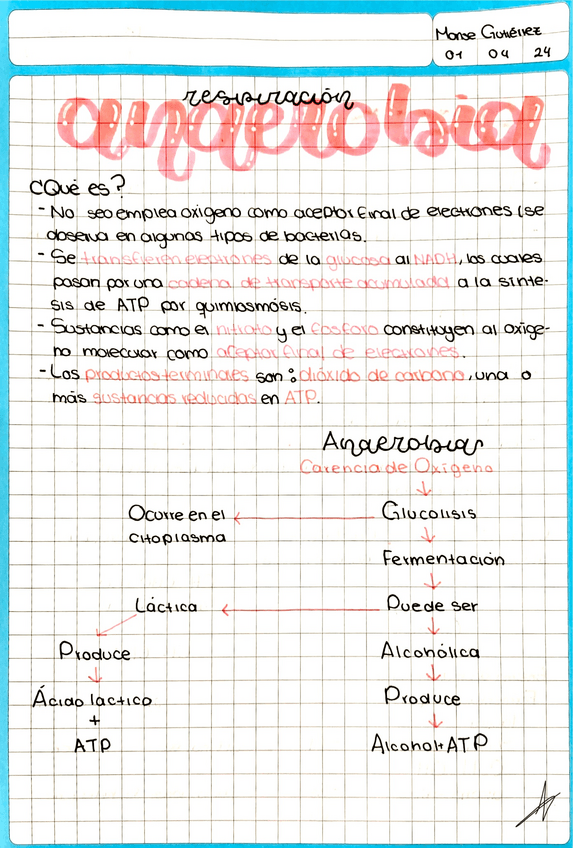 Monse Gutiérrez
01 04 24
respiración
anaerobia
¿Qué es?
- No seo emplea oxígeno como aceptor final de electrones (se
observa en algunas tipos de bacterias.
- Se transfieren electrones de la glucosa al NADH, los cuales
pasan por una cadena de transporte acumulada a la sínte-
sis de ATP por quimiosmósis.
- Sustancias como el nitrato y el fosforo constituyen al oxige-
no molecular como aceptor final de electrones.
- Los productos terminales son: dióxido de carbono, una o
más sustancias reducidas en ATP.
Anaerobia
Carencia de Oxígeno
Ocurre en el
Glucólisis
citoplasma
Fermentación
Láctica
Puede ser
Produce
Alcohólica
Ácido láctico
Produce
+
ATP
Alcohol+ATP